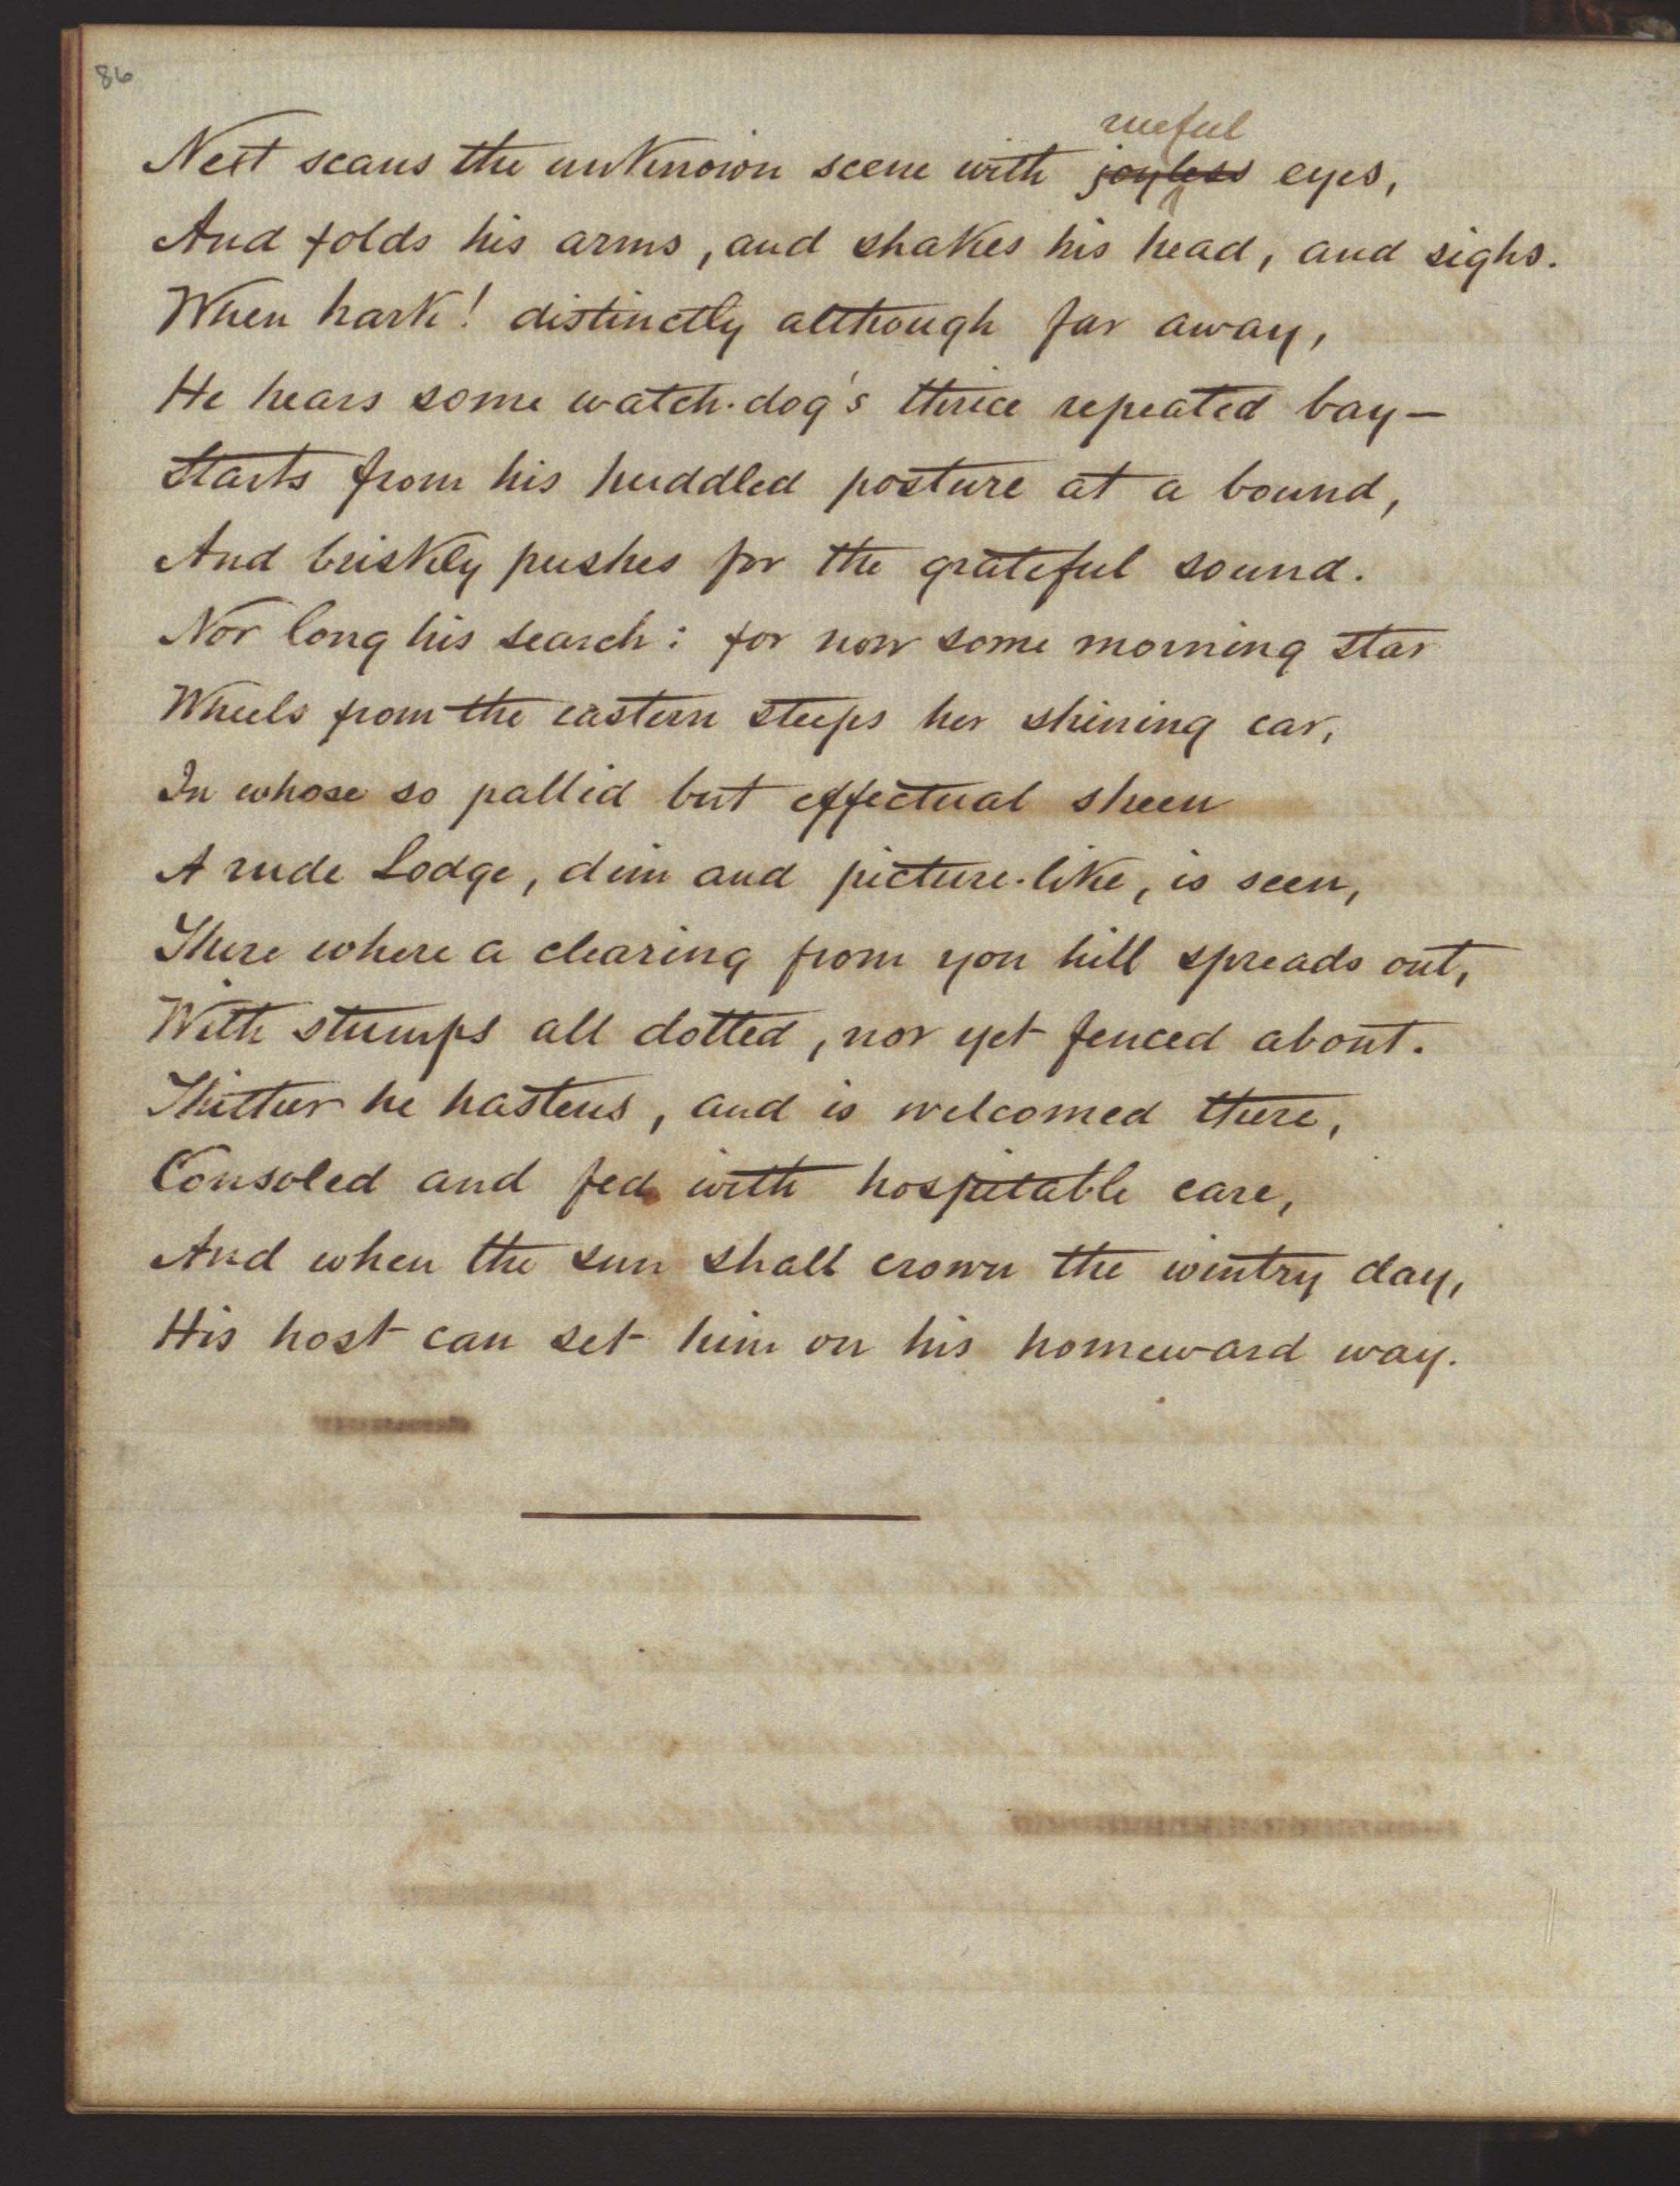 86
rueful
Next scans the unknown scene with joyless eyes,
And folds his arms, and shakes his head, and sighs.
When hark! distinctly although far away,
He hears some watch-dog's thrice repeated bay—
Starts from his huddled posture at a bound,
And briskly pushes for the grateful sound.
Nor long his search: for now some morning star
Wheels from the eastern steeps her shining car,
In whose so pallid but effectual sheen
A rude Lodge, dim and picture-like, is seen,
There where a clearing from yon hill spreads out,
With stumps all dotted, nor yet fenced about.
Thither he hastens, and is welcomed there,
Consoled and fed with hospitable care,
And when the sun shall crown the wintry day,
His host can set him on his homeward way.